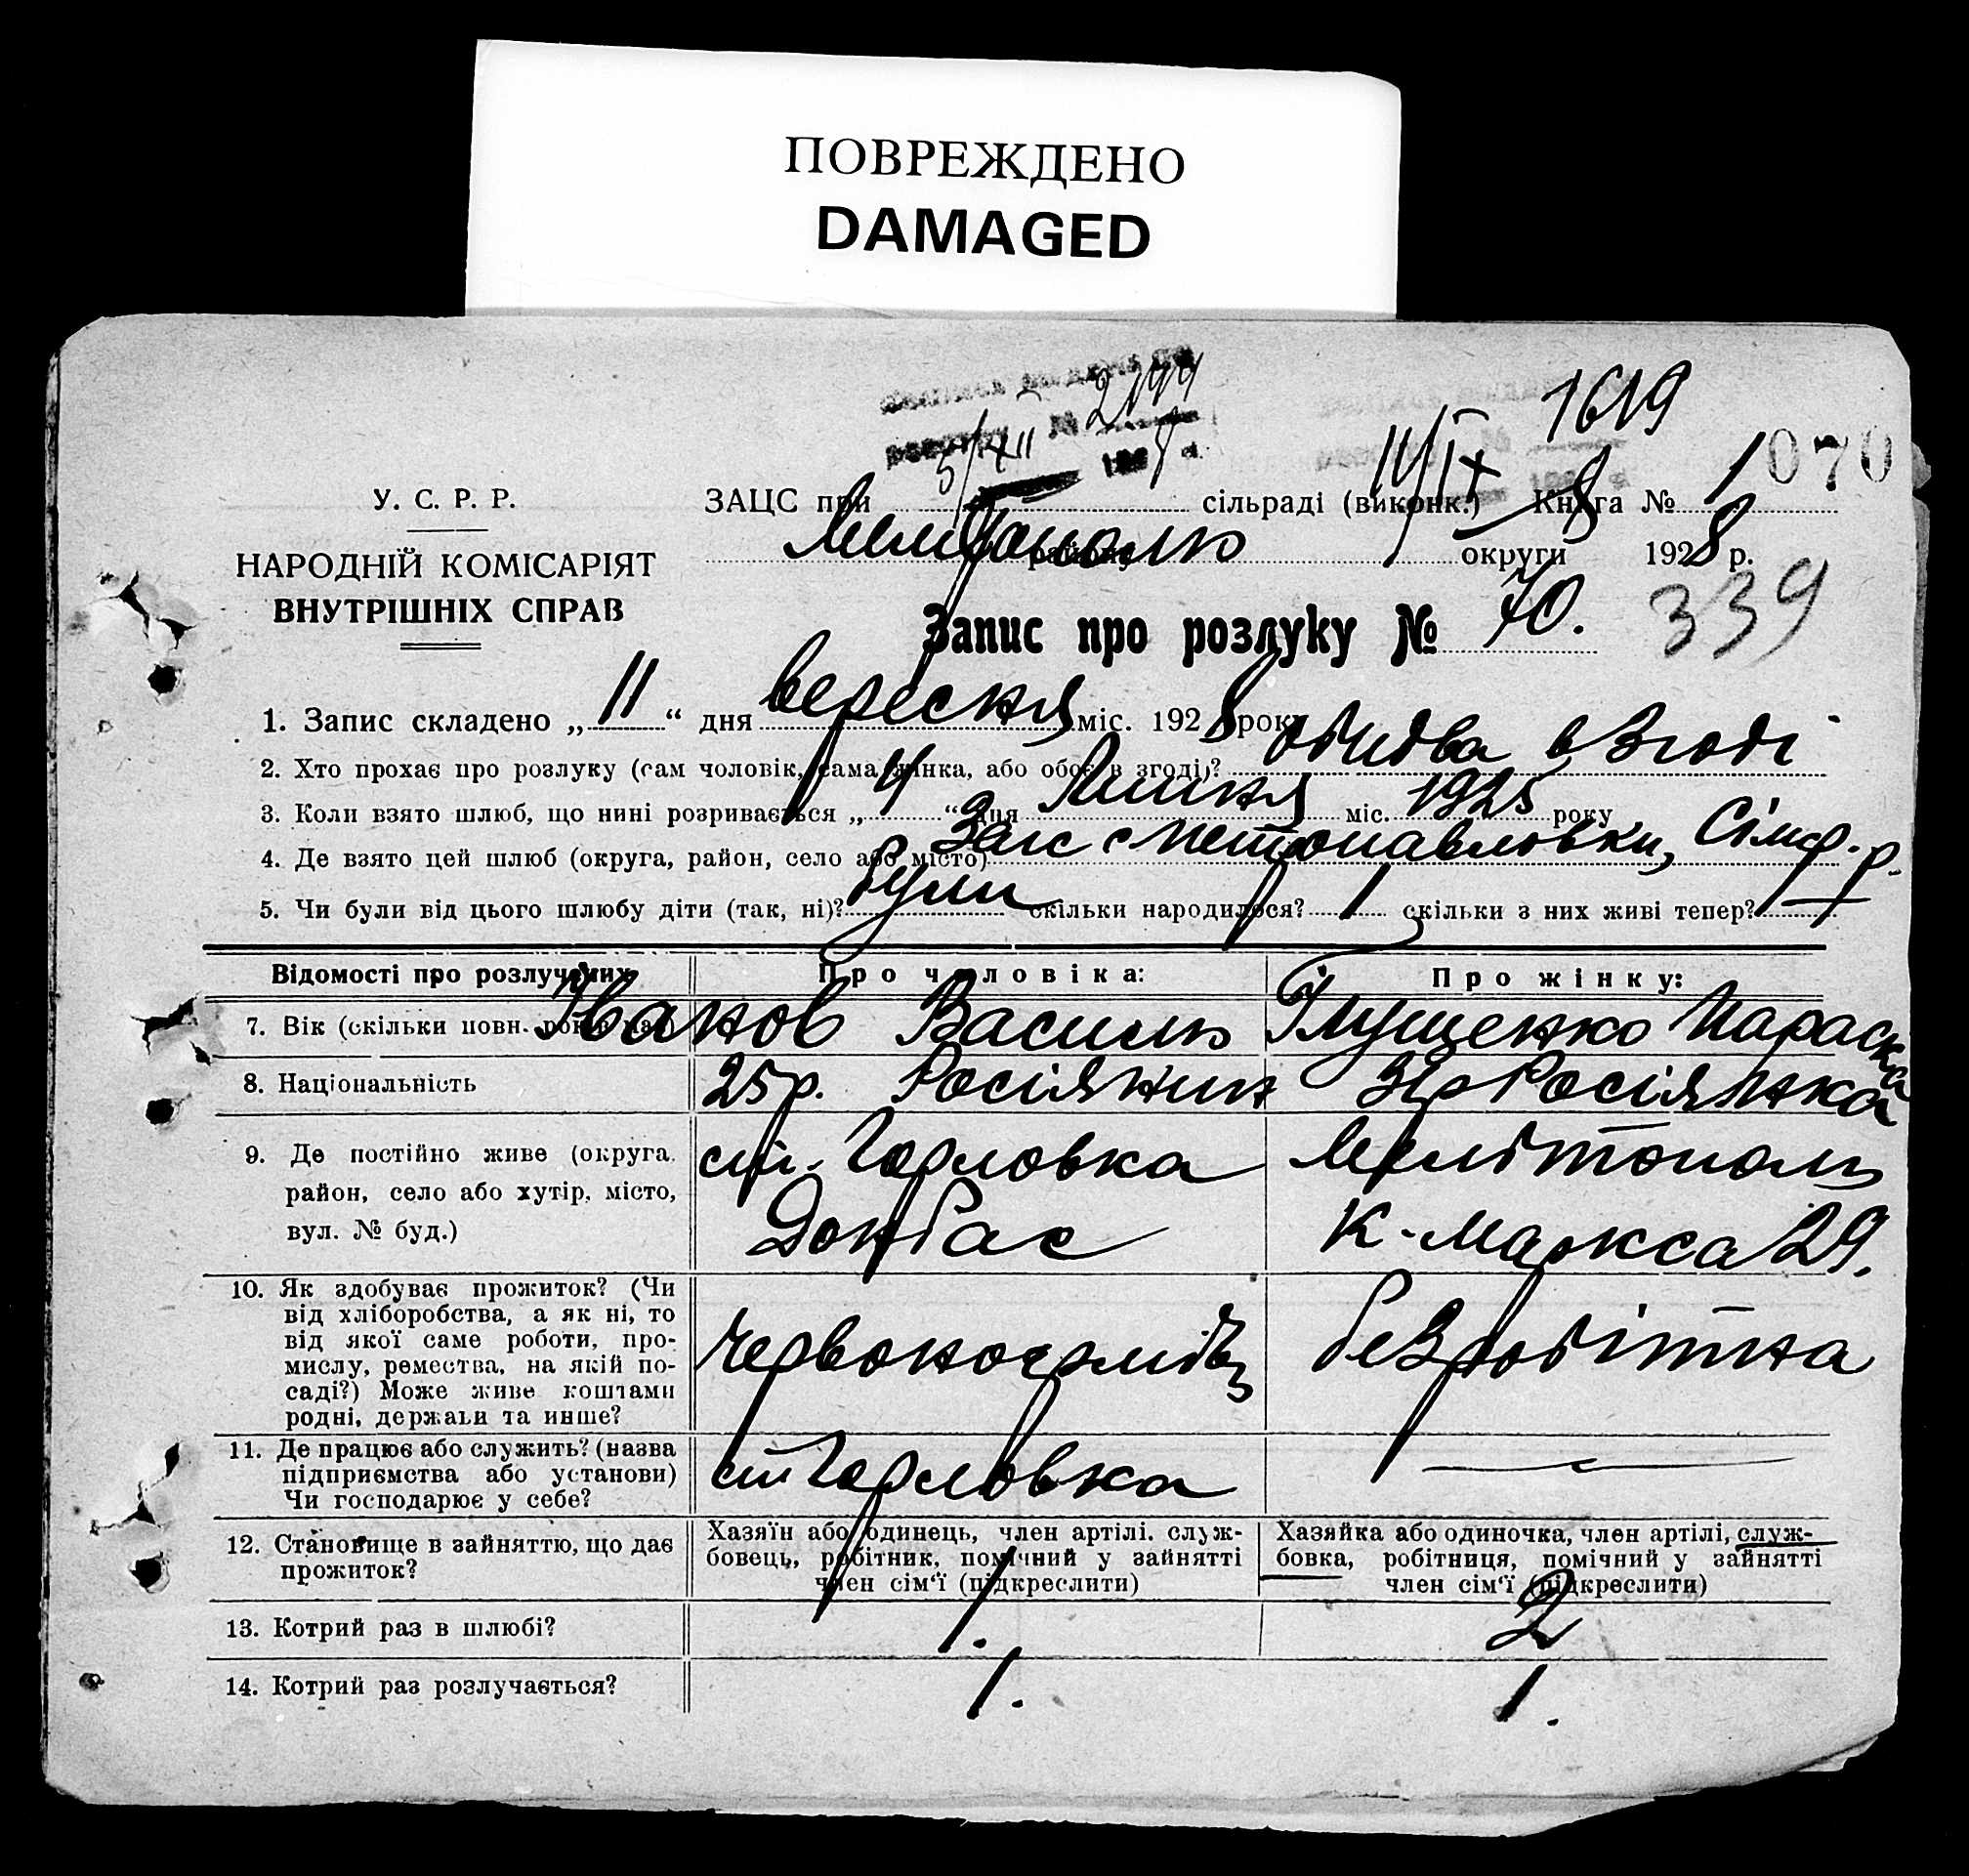 ПОВРЕЖДЕНО
DAMAGED
2144
5/XII
1619
11/IX 8
1070
У. С. Р. Р.
НАРОДНІЙ КОМІСАРІЯТ
ВНУТРІШНІХ СПРАВ
ЗАЦС при сільраді (виконк.) Книга №
Мелітополь району округи 1928 р.
Запис про розлуку № 70.
339
1. Запис складено „11“ дня вересня міс. 1928 року
2. Хто прохає про розлуку (сам чоловік, сама жінка, або обоє в згоді)? обидва в згоді
3. Коли взято шлюб, що нині розривається „4“ дня Липня міс. 1925 року
4. Де взято цей шлюб (округа, район, село або місто) Загс с Петропавловки, Сімф. р.
5. Чи були від цього шлюбу діти (так, ні)? були скільки народилося? 1 скільки з них живі тепер? 1
Відомості про розлучених Про чоловіка: Про жінку:
Іванов Василь Глущенко Параска
7. Вік (скільки повн. років має)
8. Національність 25 р. Росіянин Росіянка
9. Де постійно живе (округа, район, село або хутір, місто, вул. № буд.)
ст. Горловка Донбас
Мелітополь К-Маркса 29.
10. Як здобуває прожиток? (Чи
від хліборобства, а як ні, то
від якої саме роботи, про-
мислу, ремества, на якій по-
саді?) Може живе коштами
родні, держави та инше?
безробітна
11. Де працює або служить? (назва
підприємства або установи)
Чи господарює у себе?
ст Горловка —
12. Становище в зайняттю, що дає
прожиток?
Хазяїн або одинець, член артілі. служ-
бовець, робітник, помічний у зайнятті
член сім‘ї (підкреслити)
Хазяйка або одиночка, член артілі, служ-
бовка, робітниця, помічний у зайнятті
член сім‘ї (підкреслити)
13. Котрий раз в шлюбі? 1. 2
14. Котрий раз розлучається? 1. 1.